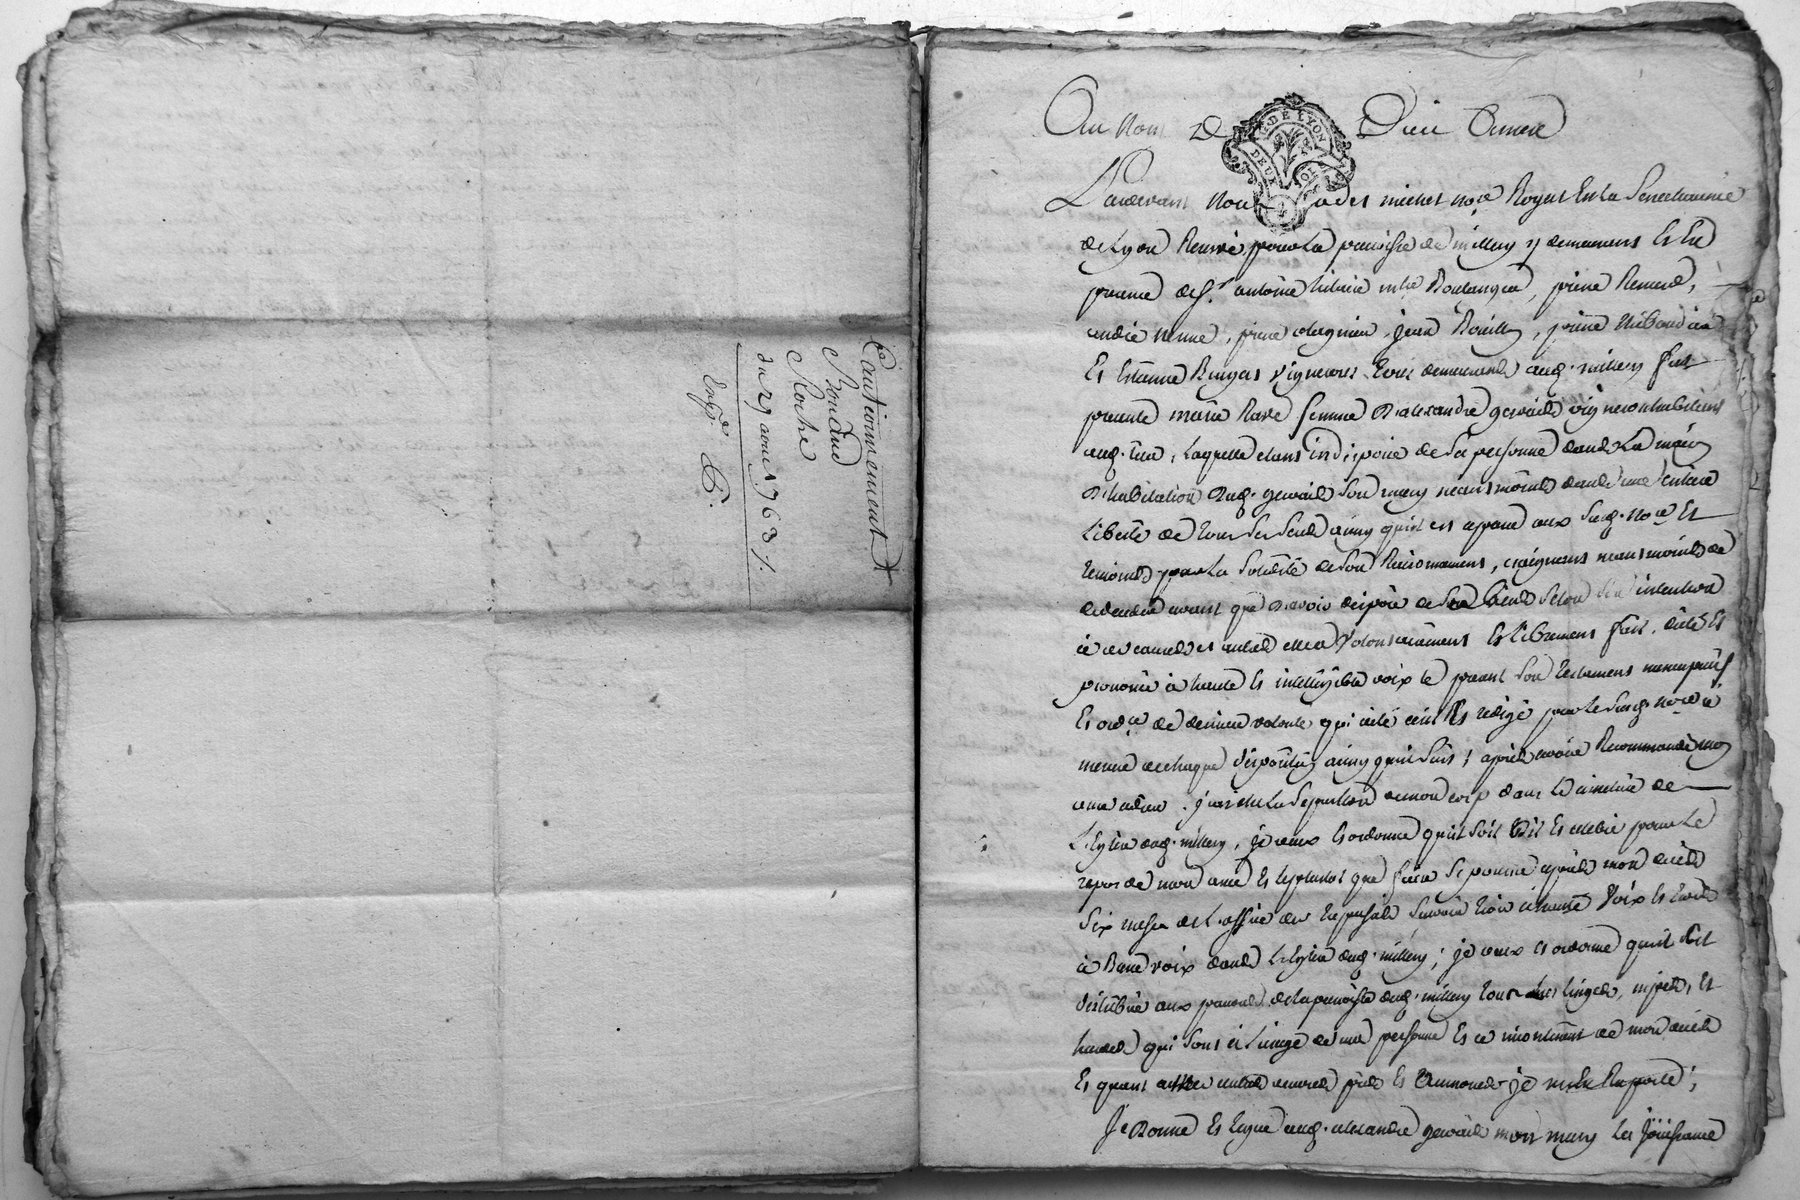 Cautionnement
Bonard
Roche
du 29 aoust 1763 /.
Au Nom de Dieu Amen
G. DE LYON
DEUX SOLS
Pardevant Nous michet no.re Royal En La Senechaussée
de Lyon Reservé pour La paroisse de millery y demeurant Et En
presence de S.r antoine m.tre Boulanger, pierre Renard,
pierre jean pierre
Et Estienne vignerons tous demeurants aud. millery fut
presente marie femme D'alexandre gervais vigneron habitant
aud. lieu, Laquelle etant indisposée de sa personne dans La maison
D'habitation Dud. gervais son mary neantmoins dans une entiere
Liberté de tous ses sens ainsy qu'il est apparu aux susd. no.re Et
temoins par La solidité de son Raisonnement, craignant neantmoins de
deceder avant que d'avoir disposé de ses biens selon son intention
à ces causes et autres elle a volontairement Et Librement fait, dicté Et
prononcé à haute Et intelligible voix le present son testament nuncupatif
Et ord.ce de derniere volonté qui a été ecrit Et redigé par le susd. no.re à
mesure de chaque disposition ainsy qu'il suit; après avoir Recommandé mon
ame à dieu. j'ai elu La sepulture de mon corps dans Le cimetiere de
L'Eglise dud. millery, je veux Et ordonne qu'il soit dit Et celebré pour Le
repos de mon ame Et le plutot que faire se pourra après mon decès
six messes de L'office des trepassés, sçavoir trois à haute voix Et trois
à Basse voix dans L'Eglise dud. millery; je veux Et ordonne qu'il soit
distribué aux pauvres de la paroisse dud. millery tous mes linges, nippes, Et
hardes qui sont à L'usage de ma personne Et ce incontinent de mon decès
Et quant autres œuvres pies Et Aumones je Rapporte;
Je Donne Et legue aud. alexandre gervais mon mary La Joüissance